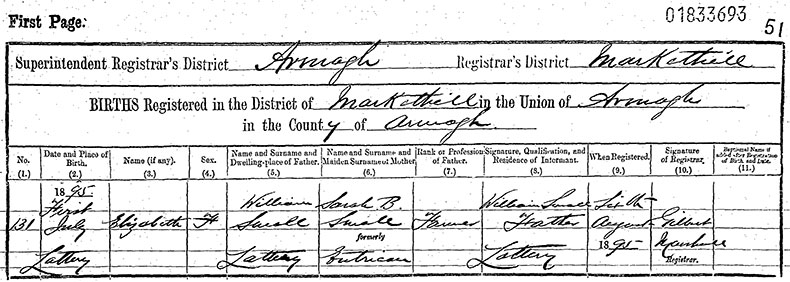 First Page: 01833693 51
Superintendent Registrar's District Armagh Registrar's District Markethill
BIRTHS Registered in the District of Markethill in the Union of Armagh
in the County of Armagh.
No. Date and Place of Birth. Name (if any). Sex. Name and Surname and Dwelling-place of Father. Name and Surname and Maiden Surname of Mother. Rank or Profession of Father. Signature, Qualification, and Residence of Informant. When Registered. Signature of Registrar. Baptismal Name if added after Registration of Birth and Date.
(1.) (2.) (3.) (4.) (5.) (6.) (7.) (8.) (9.) (10.) (11.)
1895
First William Sarah B. William Small Sixth
131 July Elizabeth F Small Small Farmer Father August Gilbert
formerly
Lattery Lattery Lattery 1895
Registrar.